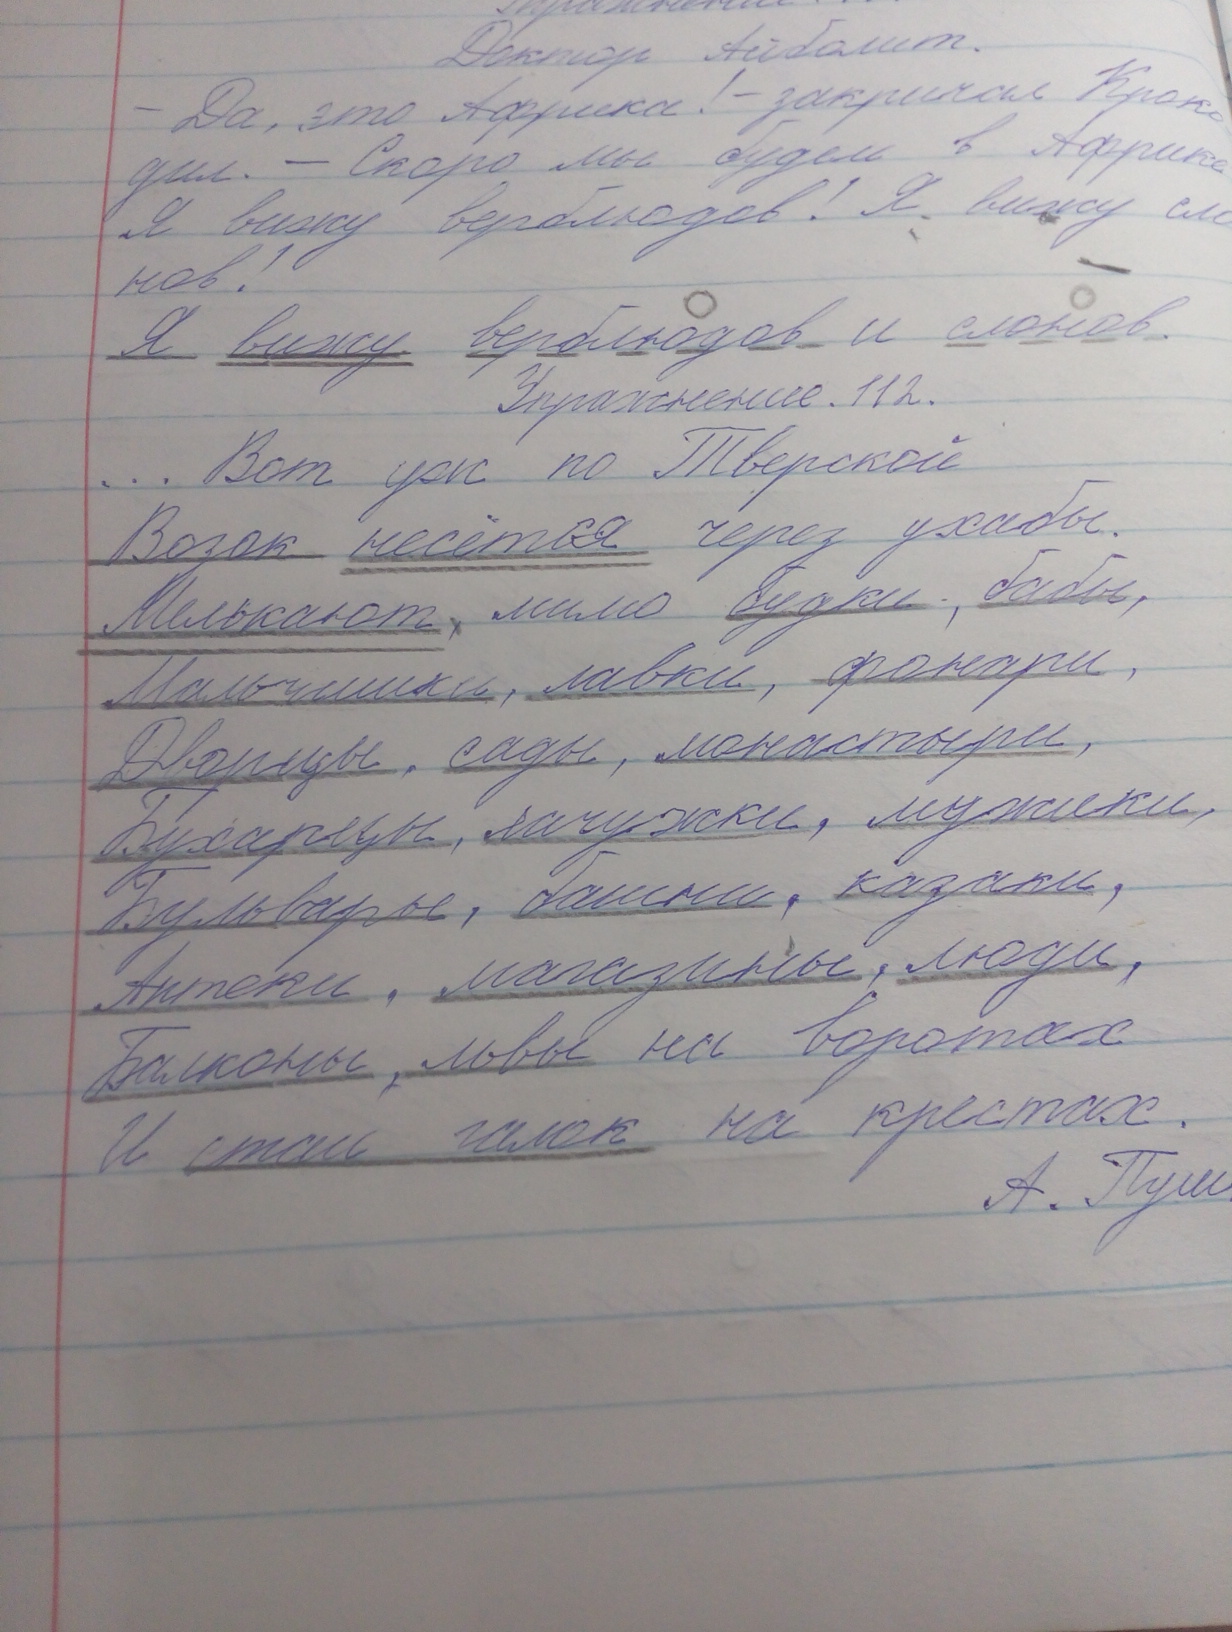 Доктор Айболит.
- Да, это Африка! - закричал Кроко
дил. - Скоро мы будем в Африке
Я вижу верблюдов! Я вижу сло
нов!
Я вижу верблюдов и слонов.
Упражнение. 112.
... Вот уж по Тверской
Возок несётся через ухабы.
Мелькают, мимо будки, бабы,
Мальчишки, лавки, фонари,
Дворцы, сады, монастыри,
Бухарцы, лачужки, мужики,
Бульвары, башни, казаки,
Аптеки, магазины, люди,
Балконы, львы на воротах
И стаи галок на крестах.
А. Пуш